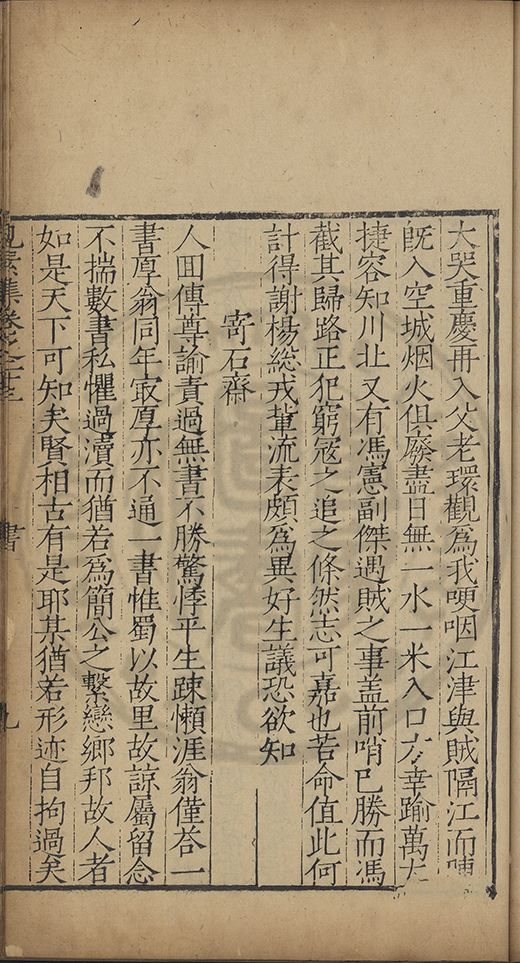 大哭重慶再入父老環觀為我哽咽江津與賊隔江而陣
旣入空城烟火俱廢盡日無一水一米入口方幸踰萬
捷容知川北又有馮憲副傑遇賊之事盖前哨已勝而馮
截其歸路正犯窮冦之追之條然志可嘉也苦命值此何
計得謝楊総戎輩流表頗為異好生議恐欲知
寄石齋
人囬傳尊諭責過無書不勝驚悸平生踈懶涯翁僅荅一
書厚翁同年㝡厚亦不通一書惟蜀以故里故諒屬留念
不揣數書私懼過瀆而猶若為簡公之繫戀鄉邦故人者
如是天下可知矣賢相古有是耶某猶若形迹自拘過矣
見素集卷之二十三
書
九